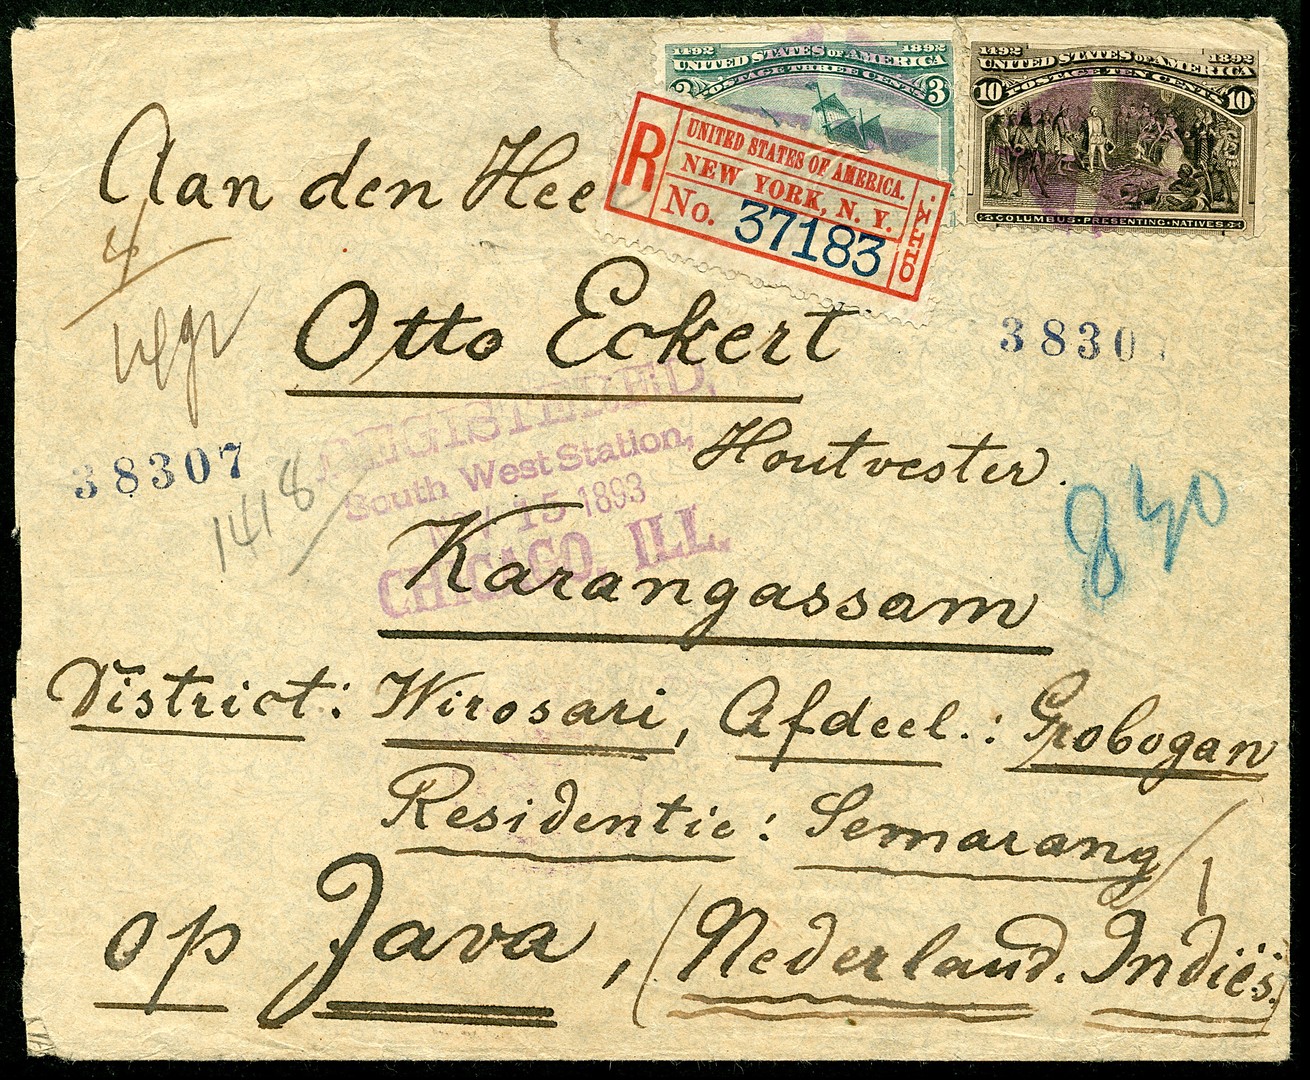 1492 1892
UNITED STATES OF AMERICA
POSTAGE THREE CENTS
3
1492 1892
UNITED STATES OF AMERICA
POSTAGE TEN CENTS
10 10
COLUMBUS PRESENTING NATIVES
R
UNITED STATES OF AMERICA.
NEW YORK, N. Y.
No. 37183
Aan den Hee
Otto Eckert
38307
3830
REGISTERED,
South West Station,
15 1893
CHICAGO, ILL.
Houtvester.
1418
Karangassam
District: Wirosari, Afdeel.: Grobogan
Residentie: Semarang
op Java, (Nederland. Indiës.)